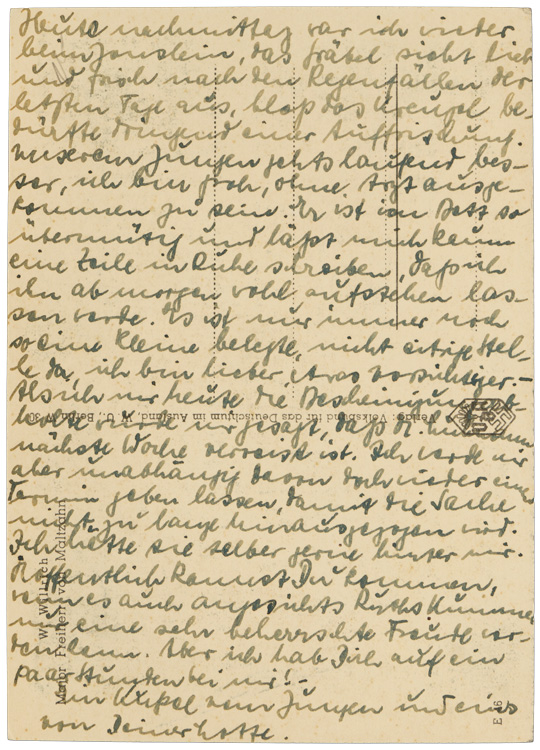 Heute nachmittag war ich wieder
beim Jonslein, das Gräbel sieht lieb
und frisch nach den Regenfällen der
letzten Tage aus, bloß das Kreuzel be-
dürfte dringend einer Auffrischung.
Unserem Jungen gehts laufend bes-
ser, ich bin froh, ohne Arzt ausge-
kommen zu sein. Er ist im Bett so
übermütig und läßt mich kaum
eine Zeile in Ruhe schreiben, daß ich
ihn ab morgen wohl aufstehen las-
sen werde. Es ist nur immer noch
so eine kleine belegte, nicht eitrige Stel-
le da, ich bin lieber etwas vorsichtiger. –
Als ich mir heute die Bescheinigung
wurde mir gesagt, daß Dr.
nächste Woche verreist ist. Ich werde mir
aber unabhängig davon doch wieder einen
Termin geben lassen, damit die Sache
nicht zu lange hinausgezogen wird.
Ich hätte sie selber gerne hinter mir.
Hoffentlich kannst Du kommen,
wenn es auch angesichts Ruths Kummer
nur eine sehr beherrschte Freude
Aber ich hab Dich auf ein
paar Stunden bei mir! –
Ein Küßel vom Jungen und eins
von Deiner Lotte.
Verlag: Volksbund für das Deutschtum im Ausland, W. U., Berlin W 30
W. Willrich
Major Freiherr von Maltzahn
E 46